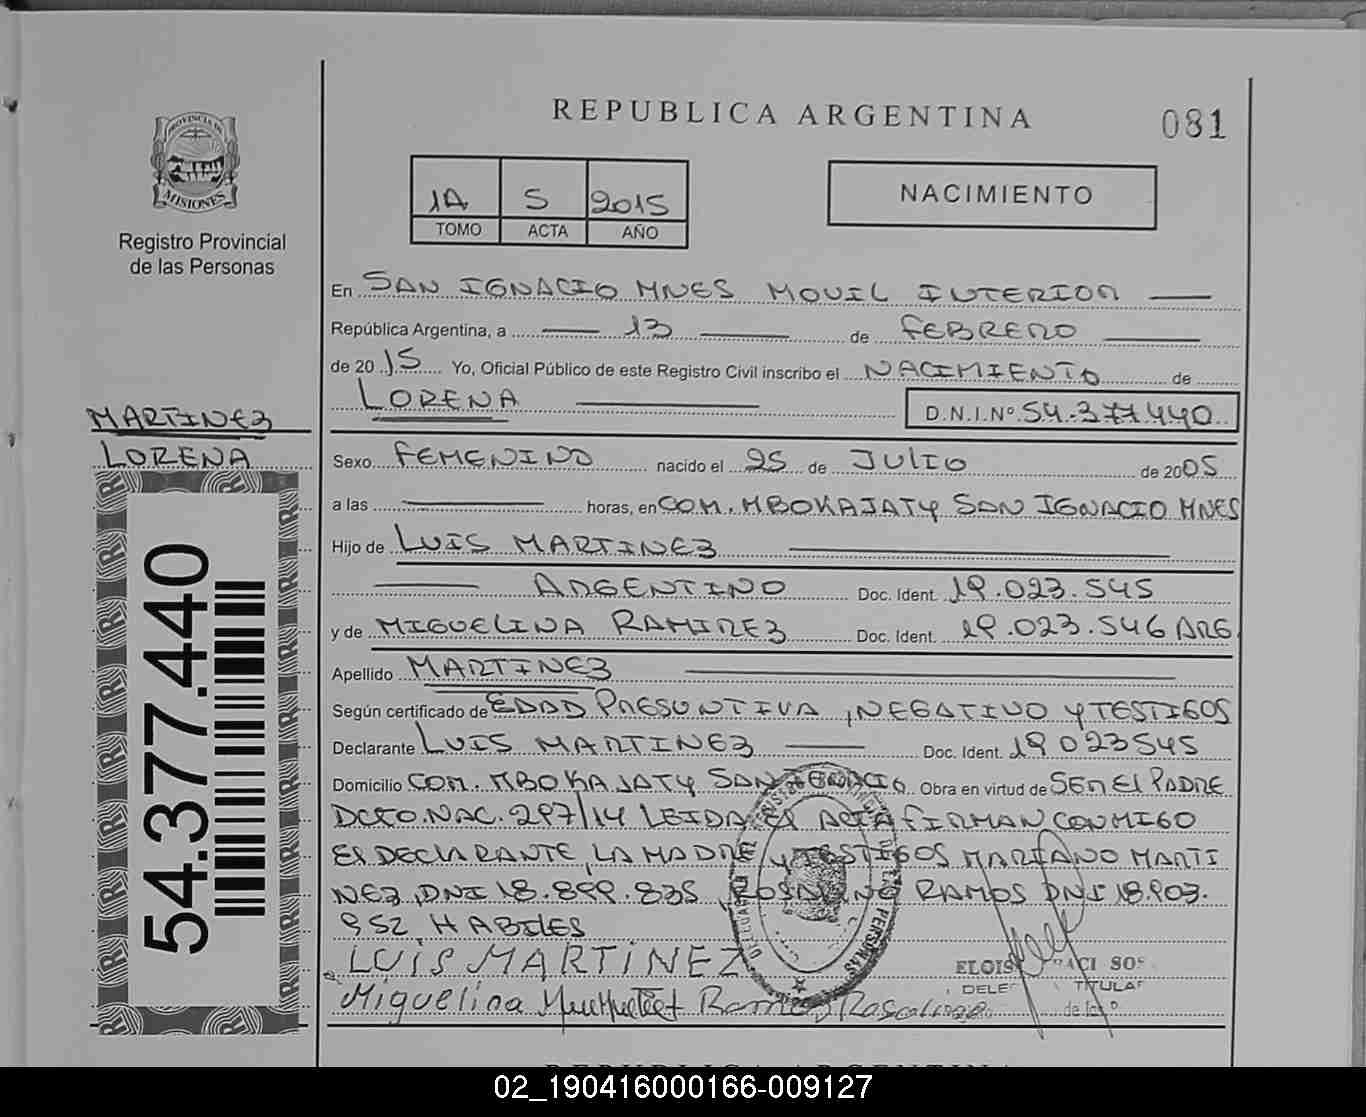 REPUBLICA ARGENTINA
081
PROVINCIA DE
MISIONES
Registro Provincial
de las Personas
1A 5 2015
TOMO ACTA AÑO
NACIMIENTO
En SAN IGNACIO MNES MOVIL INTERIOR
República Argentina, a 13 de FEBRERO
de 20 15 Yo, Oficial Público de este Registro Civil inscribo el NACIMIENTO de
LORENA D.N.I.Nº 54.377.440
MARTINEZ
LORENA
54.377.440
Sexo FEMENINO nacido el 25 de JULIO de 2005
a las horas, en COM. MBOKAJATY SAN IGNACIO MNES
Hijo de LUIS MARTINEZ
ARGENTINO Doc. Ident. 19.023.545
y de MIGUELINA RAMIREZ Doc. Ident. 19.023.546 ARG
Apellido MARTINEZ
Según certificado de EDAD PRESUNTIVA, NEGATIVO Y TESTIGOS
Declarante LUIS MARTINEZ Doc. Ident. 19023545
Domicilio COM. MBOKAJATY SAN IGNACIO Obra en virtud de SER EL PADRE
DCTO. NAC. 297/14 LEIDA EL ACTA FIRMAN CONMIGO
EL DECLARANTE, LA MADRE Y TESTIGOS MARIANO MARTI
NEZ, DNI 18.899.835, ROSALINO RAMOS DNI 18.903.
952 HABILES
LUIS MARTINEZ
Miguelina Ramos Rosalino
TITULAR
PERSONAS
REPUBLICA ARGENTINA
02_190416000166-009127